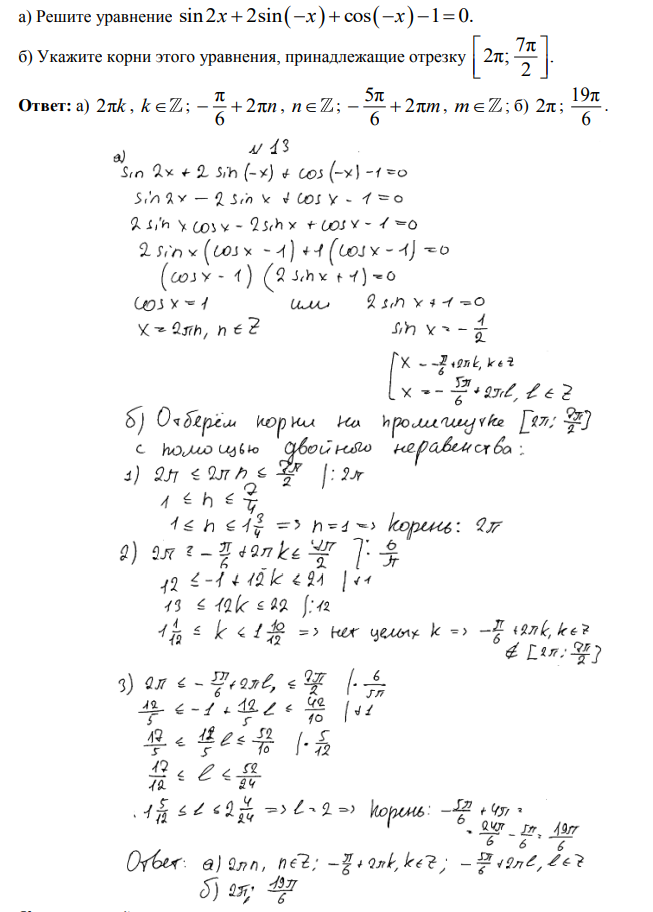 а) Решите уравнение sin2x + 2sin(−x) + cos(−x) − 1 = 0.
б) Укажите корни этого уравнения, принадлежащие отрезку [2π; 7π/2].
Ответ: а) 2πk, k ∈ ℤ; −π/6 + 2πn, n ∈ ℤ; −5π/6 + 2πm, m ∈ ℤ; б) 2π; 19π/6.
N 13
а)
sin 2x + 2 sin (-x) + cos (-x) - 1 = 0
sin 2x - 2 sin x + cos x - 1 = 0
2 sin x cos x - 2 sin x + cos x - 1 = 0
2 sin x (cos x - 1) + 1 (cos x - 1) = 0
(cos x - 1) (2 sin x + 1) = 0
cos x = 1 или 2 sin x + 1 = 0
x = 2πn, n ∈ Z sin x = - 1/2
[ x = -π/6 + 2πk, k ∈ Z
x = - 5π/6 + 2πl, l ∈ Z
б) Отберём корни на промежутке [2π; 7π/2]
с помощью двойного неравенства:
1) 2π ≤ 2πn ≤ 7π/2 |: 2π
1 ≤ n ≤ 7/4
1 ≤ n ≤ 1 3/4 => n = 1 => корень: 2π
2) 2π ≤ - π/6 + 2πk ≤ 7π/2 |· 6/π
12 ≤ -1 + 12k ≤ 21 | +1
13 ≤ 12k ≤ 22 |: 12
1 1/12 ≤ k ≤ 1 10/12 => нет целых k => -π/6 + 2πk, k ∈ Z
∉ [2π; 7π/2]
3) 2π ≤ - 5π/6 + 2πl, ≤ 7π/2 |· 6/5π
12/5 ≤ -1 + 12/5 l ≤ 42/10 | +1
17/5 ≤ 12/5 l ≤ 52/10 |· 5/12
17/12 ≤ l ≤ 52/24
1 5/12 ≤ l ≤ 2 4/24 => l = 2 => корень: - 5π/6 + 4π =
= 24π/6 - 5π/6 = 19π/6
Ответ: а) 2πn, n ∈ Z; -π/6 + 2πk, k ∈ Z; - 5π/6 + 2πl, l ∈ Z
б) 2π; 19π/6